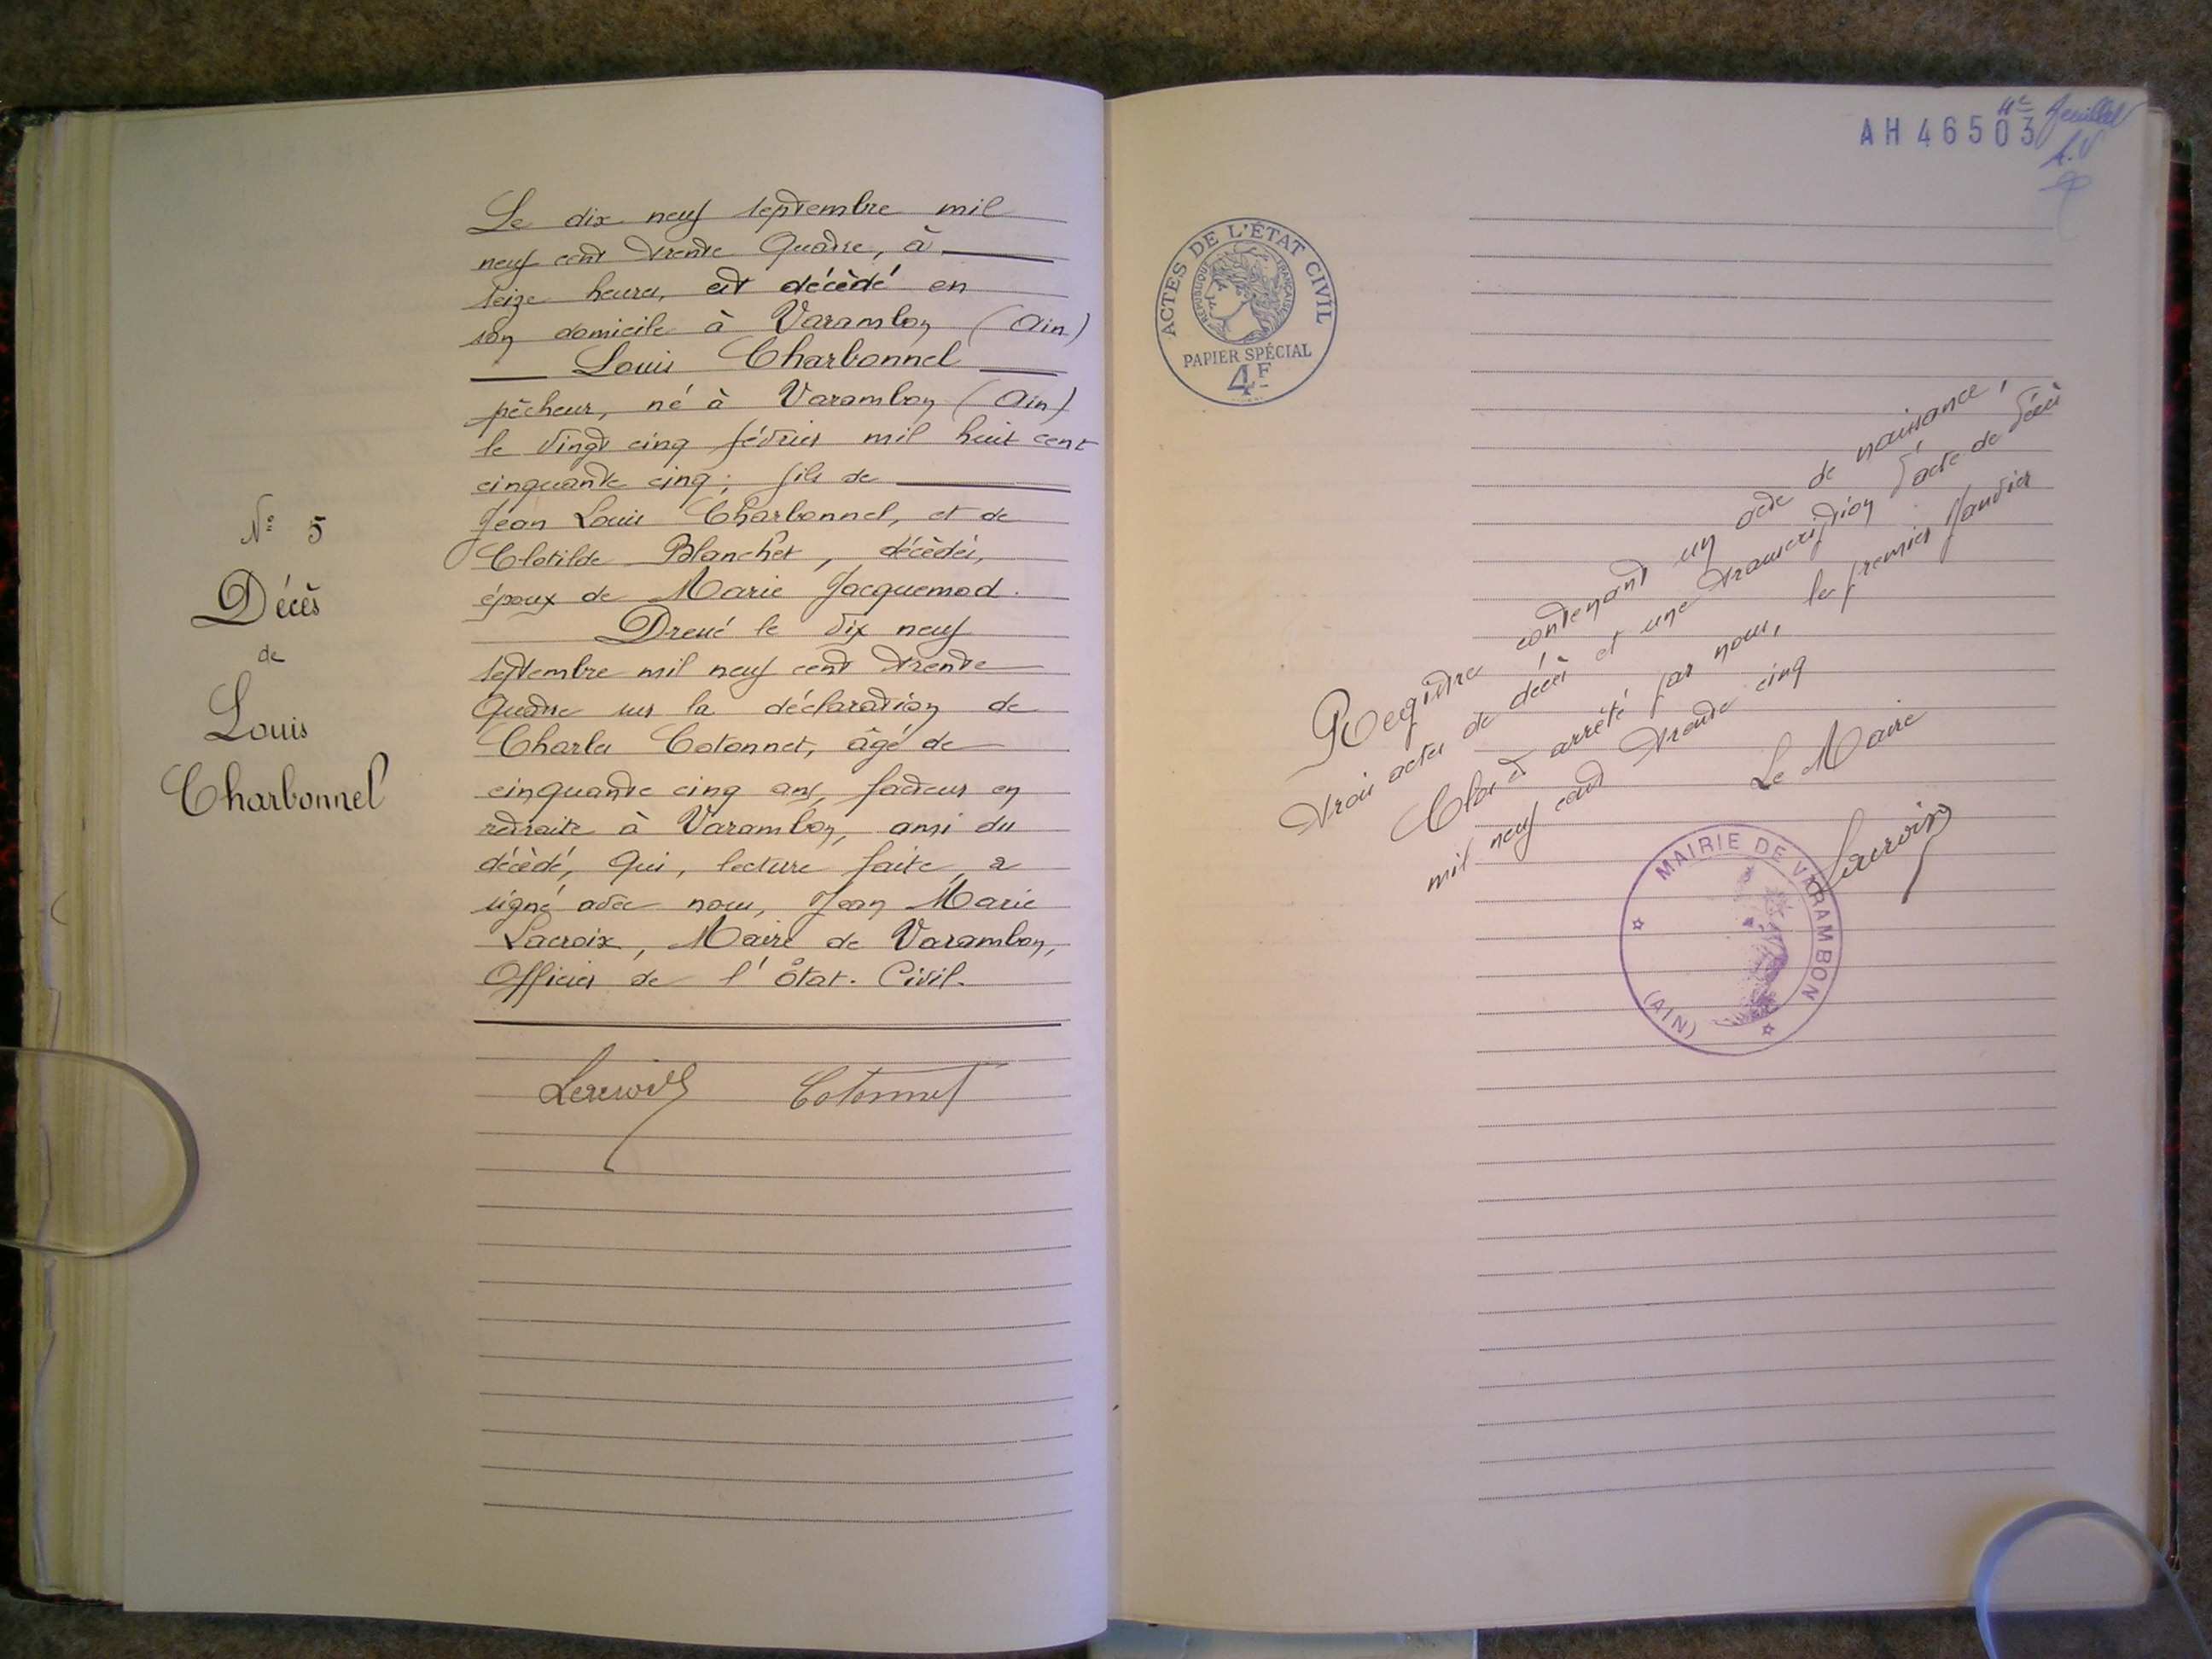 N° 5
Décès
de
Louis
Charbonnel
Le dix neuf septembre mil
neuf cent trente quatre, à
seize heures, est décédé en
son domicile à Varambon (Ain)
Louis Charbonnel
pêcheur, né à Varambon (Ain)
le vingt cinq février mil huit cent
cinquante cinq; fils de
Jean Louis Charbonnel, et de
Clotilde Blanchet, décédés,
époux de Marie Jacquemod.
Dressé le dix neuf
septembre mil neuf cent trente
quatre sur la déclaration de
Charles Cotonnet, âgé de
cinquante cinq ans, facteur en
retraite à Varambon, ami du
décédé, qui, lecture faite, a
signé avec nous, Jean Marie
Lacroix, Maire de Varambon,
Officier de l'état-Civil.
Lacroix Cotonnet
AH 46503
4e feuillet
ACTES DE L'ÉTAT CIVIL
RÉPUBLIQUE FRANÇAISE
PAPIER SPÉCIAL
4F
Registre contenant un acte de naissance,
trois actes de décès et une transcription d'acte de décès
Clos et arrêté par nous, le premier Janvier
mil neuf cent trente cinq
Le Maire
Lacroix
MAIRIE DE VARAMBON
(AIN)